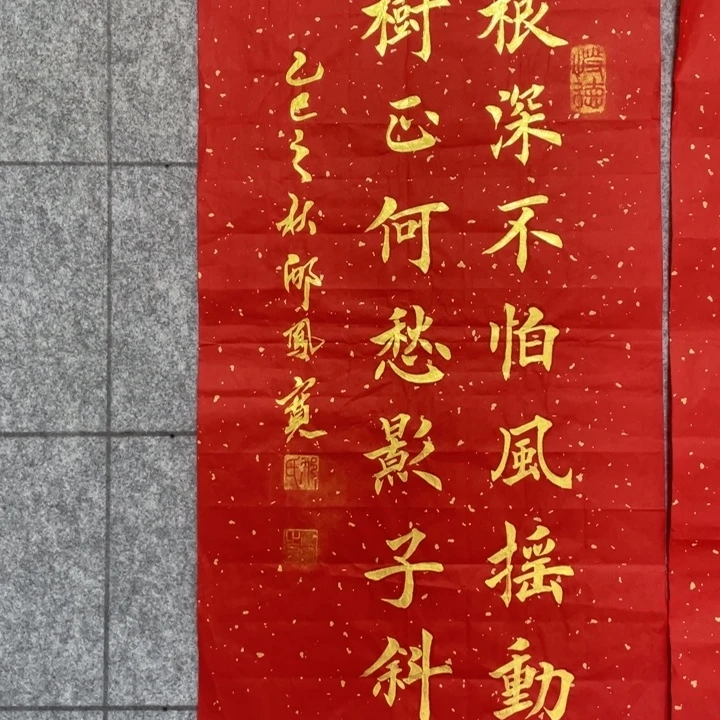 根深不怕風摇動
樹正何愁影子斜
乙巳之秋邢鳳寬